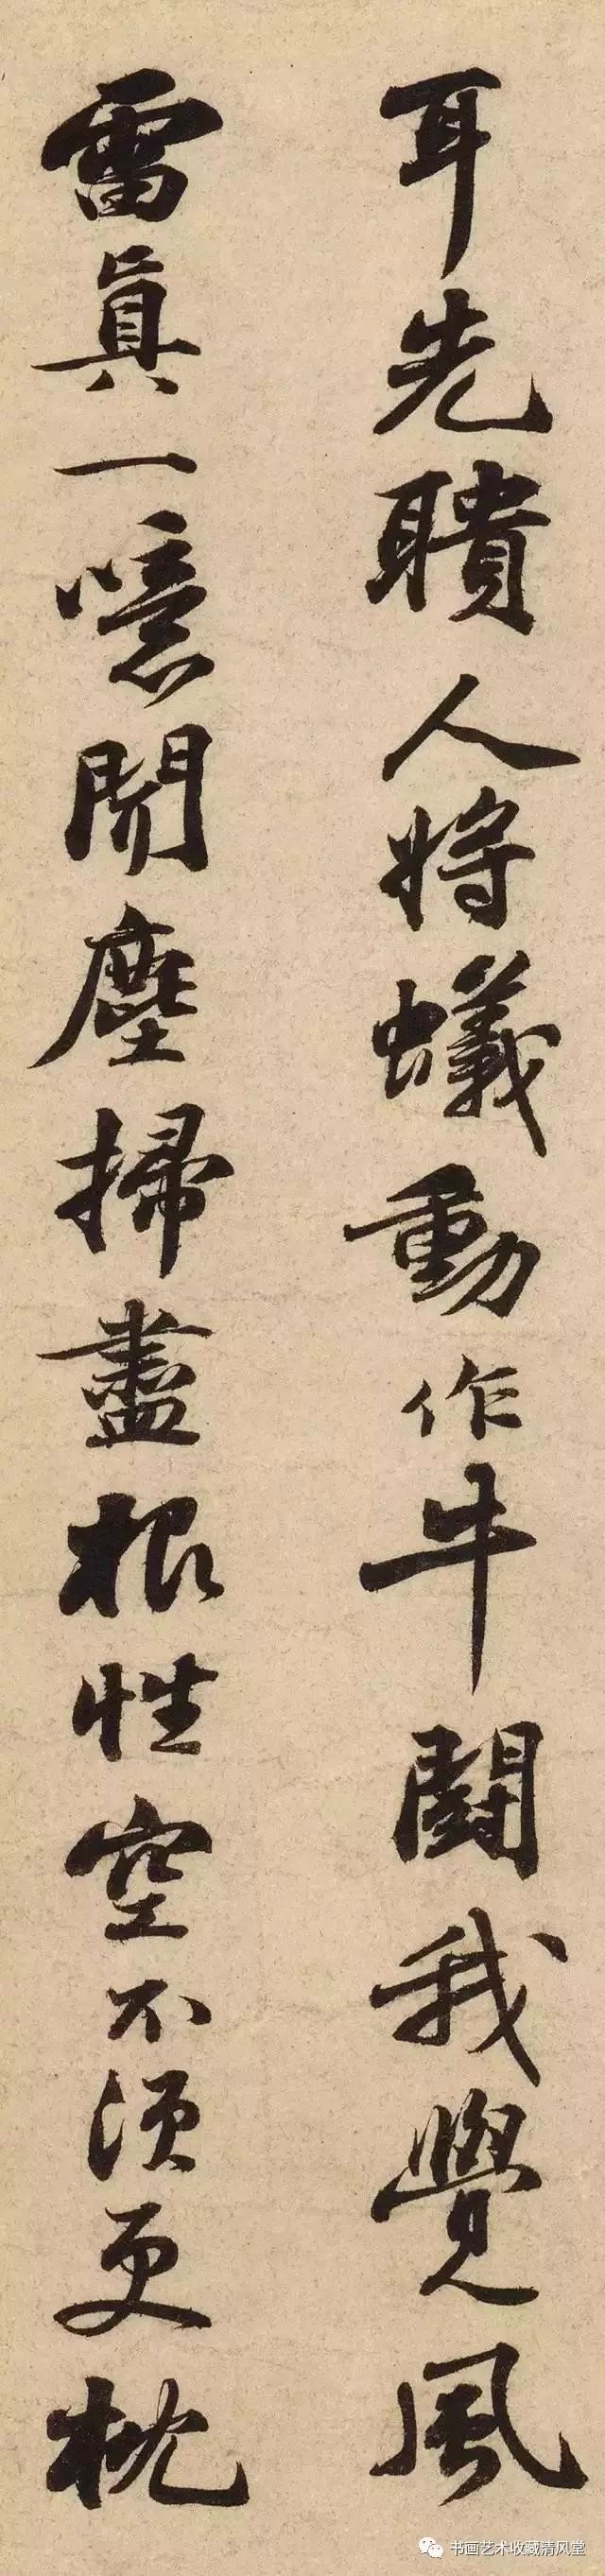 耳先聵人將蟻動作牛鬪我覺風
雷真一噫閒塵掃盡根性空不須更枕
书画艺术收藏清风堂